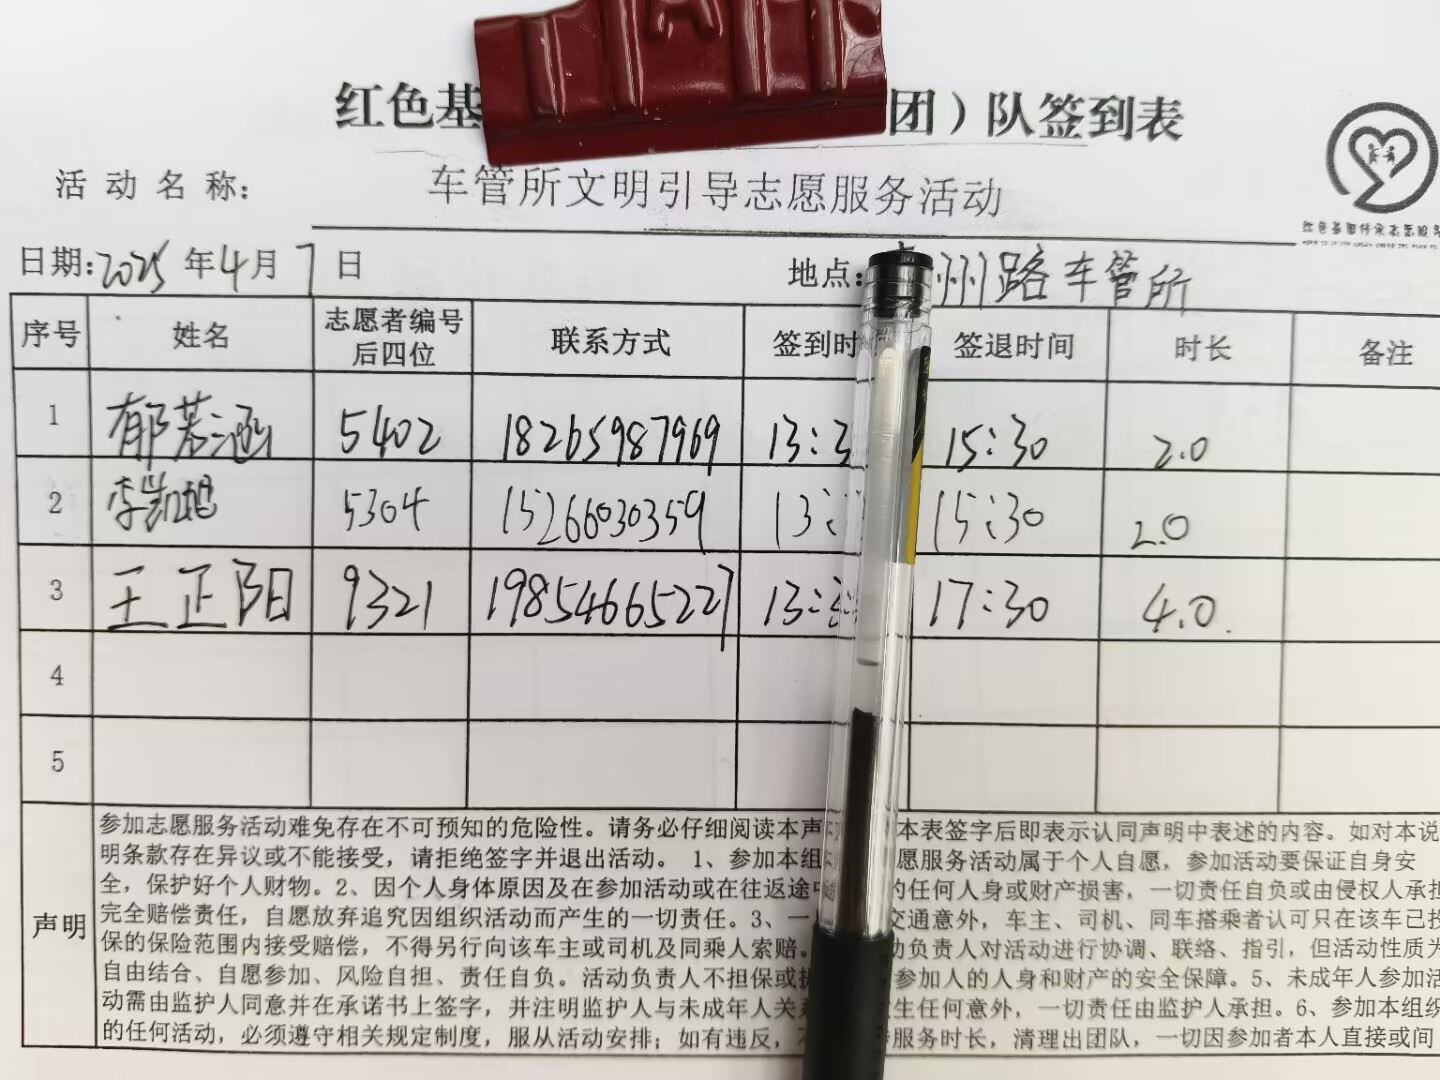 红色基 团）队签到表
活动名称： 车管所文明引导志愿服务活动
日期：2025年4月7日 地点： 州路车管所
序号 姓名 志愿者编号后四位 联系方式 签到时 签退时间 时长 备注
1 郁若涵 5402 18265987969 13:3 15:30 2.0
2 李凯旭 5304 15266030359 13: 15:30 2.0
3 王正阳 9321 19854665227 13:3 17:30 4.0
4
5
声明
参加志愿服务活动难免存在不可预知的危险性。请务必仔细阅读本声 本表签字后即表示认同声明中表述的内容。如对本说
明条款存在异议或不能接受，请拒绝签字并退出活动。 1、参加本组 愿服务活动属于个人自愿，参加活动要保证自身安
全，保护好个人财物。2、因个人身体原因及在参加活动或在往返途中 的任何人身或财产损害，一切责任自负或由侵权人承担
完全赔偿责任，自愿放弃追究因组织活动而产生的一切责任。3、一 交通意外，车主、司机、同车搭乘者认可只在该车已投
保的保险范围内接受赔偿，不得另行向该车主或司机及同乘人索赔。 动负责人对活动进行协调、联络、指引，但活动性质为
自由结合、自愿参加、风险自担、责任自负。活动负责人不担保或 参加人的人身和财产的安全保障。5、未成年人参加活
动需由监护人同意并在承诺书上签字，并注明监护人与未成年人关系 生任何意外，一切责任由监护人承担。6、参加本组织
的任何活动，必须遵守相关规定制度，服从活动安排；如有违反， 服务时长，清理出团队，一切因参加者本人直接或间